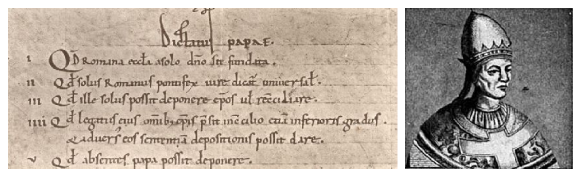 Dictatus papae.
I Qd Romana eccla a solo dno sit fundata.
II Qd solus Romanus pontifex iure dicat universal.
III Qd ille solus possit deponere epos ul reconciliare.
IIII Qd legatus eius omnib; epis psit in concilio etia inferioris gradus.
& adversus eos sententia depositionis possit dare.
V Qd absentes papa possit deponere.